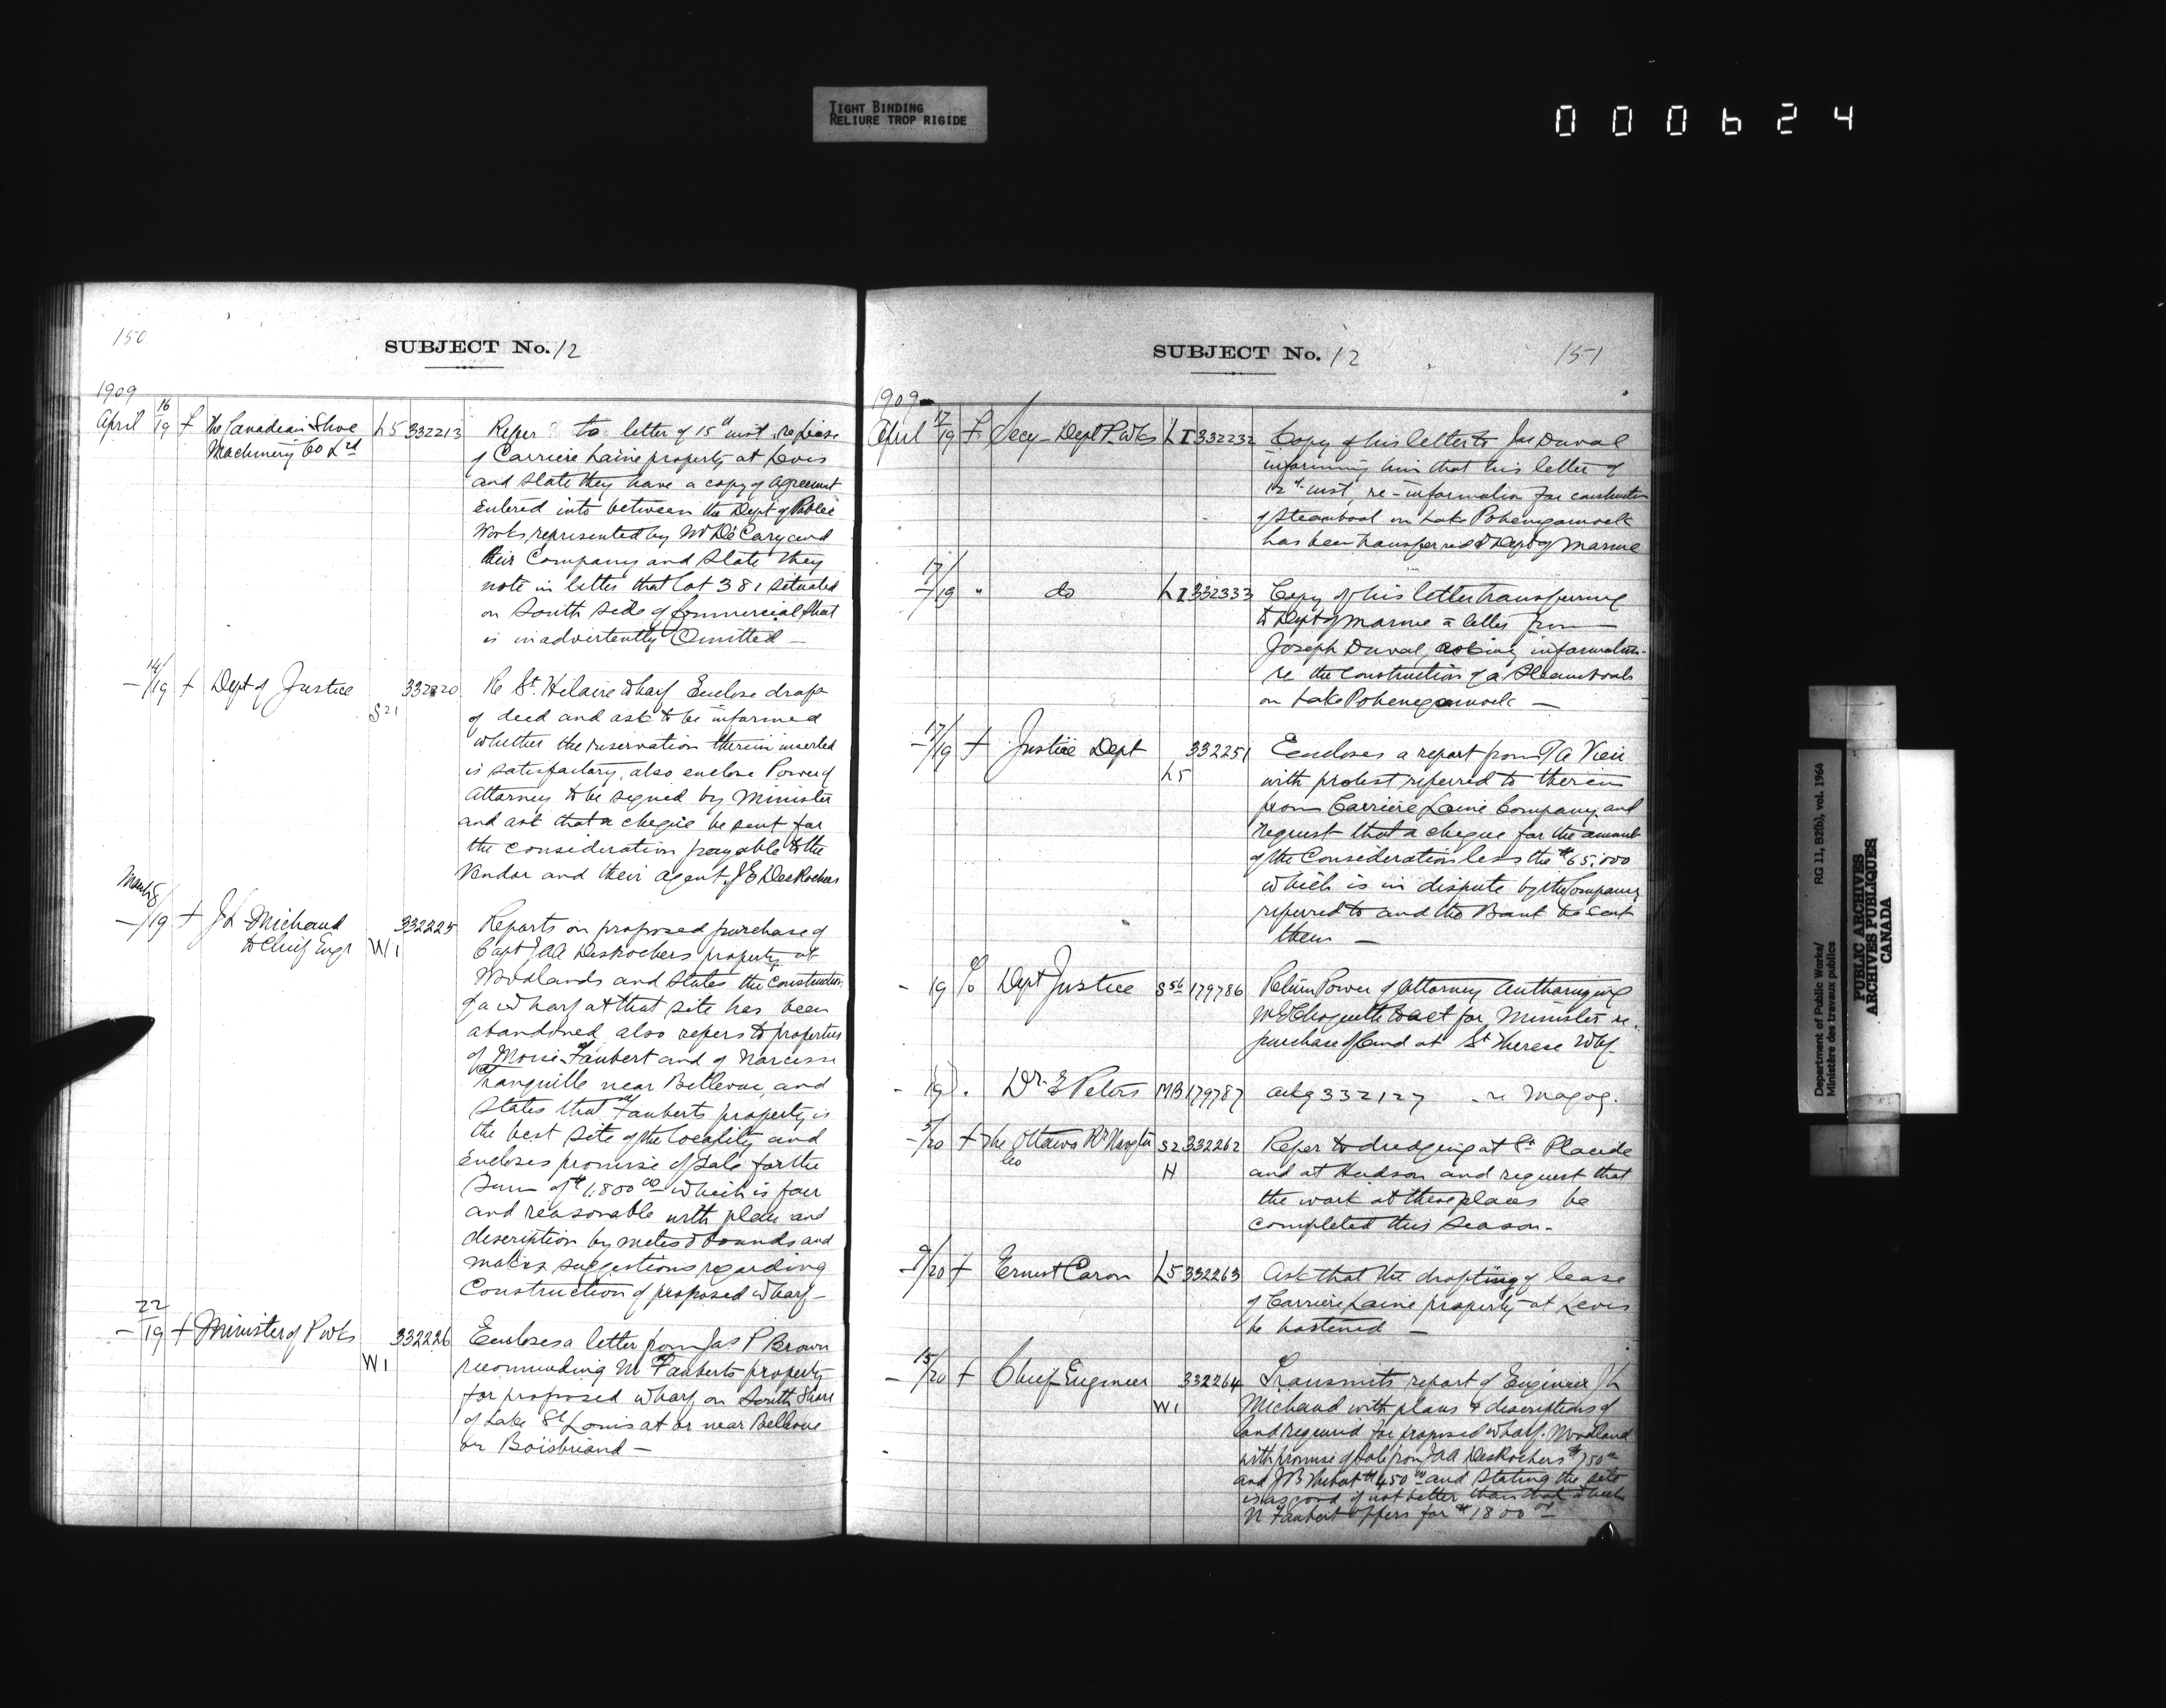 TIGHT BINDING
RELIURE TROP RIGIDE
000624
150
SUBJECT No. 12
1909
April 16/19 f The Canadian Shoe L5 332213 Refer to letter of 15th inst re lease
Machinery Co Ltd of Carriere Laine property at Levis
and state they have a copy of agreement
entered into between the Dept of Public
Works, represented by Mr DeCary and
their Company and state they
note in letter that lot 381 situated
on South side of Commercial that
is inadvertently Omitted —
— 14/19 + Dept of Justice S21 332220 Re St. Hilaire Wharf Enclose draft
of deed and ask to be informed
whether the reservation therein inserted
is satisfactory, also enclose Power of
Attorney to be signed by Minister
and ask that a cheque be sent for
the consideration payable to the
Vendor and their agent J E DesRochers
March 18
—/19 + J L Michaud W1 332225 Reports on proposed purchase of
to Chief Engr Capt J A A DesRochers property at
Woodlands and states the construction
of a wharf at that site has been
abandoned also refers to properties
of Moise Faubert and of Narcisse
Tranquille near Bellevue, and
states that Faubert's property is
the best site of the locality and
encloses promise of sale for the
Sum of $1,800.00 which is fair
and reasonable with plan and
description by metes & bounds and
makes suggestions regarding
Construction of proposed wharf —
— 22/19 + Minister of P Wks W1 332226 Encloses a letter from Jas P Brown
recommending M Fauberts property
for proposed wharf on South Shore
of Lake St Louis at or near Bellevue
or Boisbriand —
SUBJECT No. 12
151
1909
April 17/19 f Secy Dept P. Wks L I 332232 Copy of his letter to Jos Duval
informing him that his letter of
12th inst, re-information for construction
of steamboat on Lake Pohenegamook
has been transferred to Dept of Marine
17/19 " do L I 332333 Copy of his letter transferring
to Dept of Marine a letter from
Joseph Duval, asking information
re the construction of a Steamboat
on Lake Pohenegamook —
— 17/19 + Justice Dept L5 332251 Encloses a report from
with protest referred to therein
from Carriere Laine Company, and
request that a cheque for the amount
of the Consideration less the $65.000
which is in dispute by the Company
referred to and the Bank be sent
them —
- 19 Dept Justice S56 179786 Return Power of Attorney Authorizing
Choquette to act for Minister re.
purchase of land at St Therese Whf.
- 19 . Dr. E Peters MB 179787 ackg 332127 - re Magog.
- 5/20 + The Ottawa Rr Navgtn S2 332262 Refer to dredging at St. Placide
Co H and at Hudson and request that
the work at these places be
completed this season.
- 9/20 + Ernest Caron L5 332263 Ask that the drafting of lease
of Carriere Laine property at Levis
be hastened —
- 15/20 + Chief Engineer W1 332264 Transmits report of Engineer J L
Michaud with plans & descriptions of
land required for proposed wharf. Woodland
with promise of Sale from J A A DesRochers $750
and J B $450.00 and stating the site
is as good if not better than that which
N Faubert offers for $1800.00
Department of Public Works/
Ministère des travaux publics
RG 11, B2(b), vol. 1964
PUBLIC ARCHIVES
ARCHIVES PUBLIQUES
CANADA